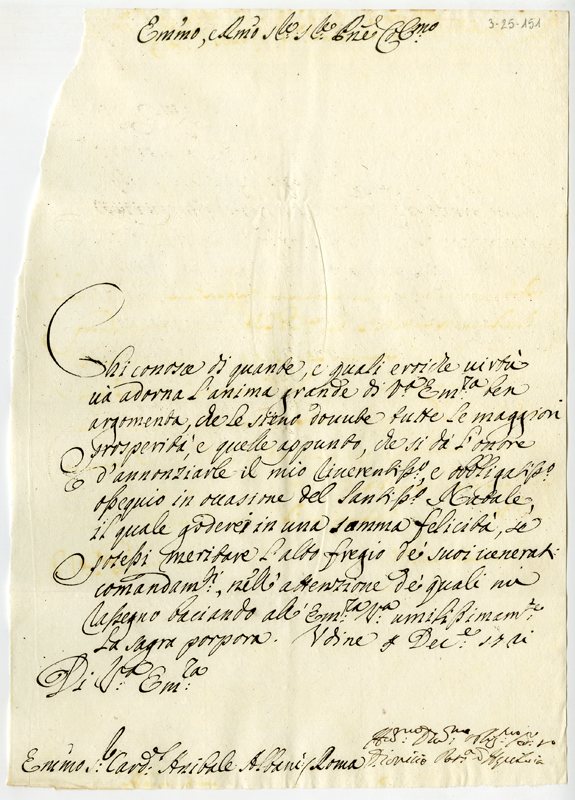 3-25-151
Em̃mo, e Rmo Sig.r Sig.r Pne Col.mo
Chi conosce di quante, e quali eroiche virtù
và adorna l'anima grande di V.a Em.za ben
argomenta, che le sieno dovute tutte le maggiori
prosperità, e quelle appunto, che si dà l'onore
d'annonziarle il mio riverentiss.o, e obbligatiss.o
ossequio in occasione del Santiss.o Natale,
il quale goderei in una somma felicità, se
potessi meritare l'alto fregio de suoi venerati
comandam.ti, nell'attenzione de quali mi
rassegno baciando all'Em.za V.a umilissimam.te
la sagra porpora. Udine Dec.e
Di V.a Em.za
Dionisio Pat.a d'Aquileia
Em̃mo Sig.r Card.e Anibale Albani / Roma